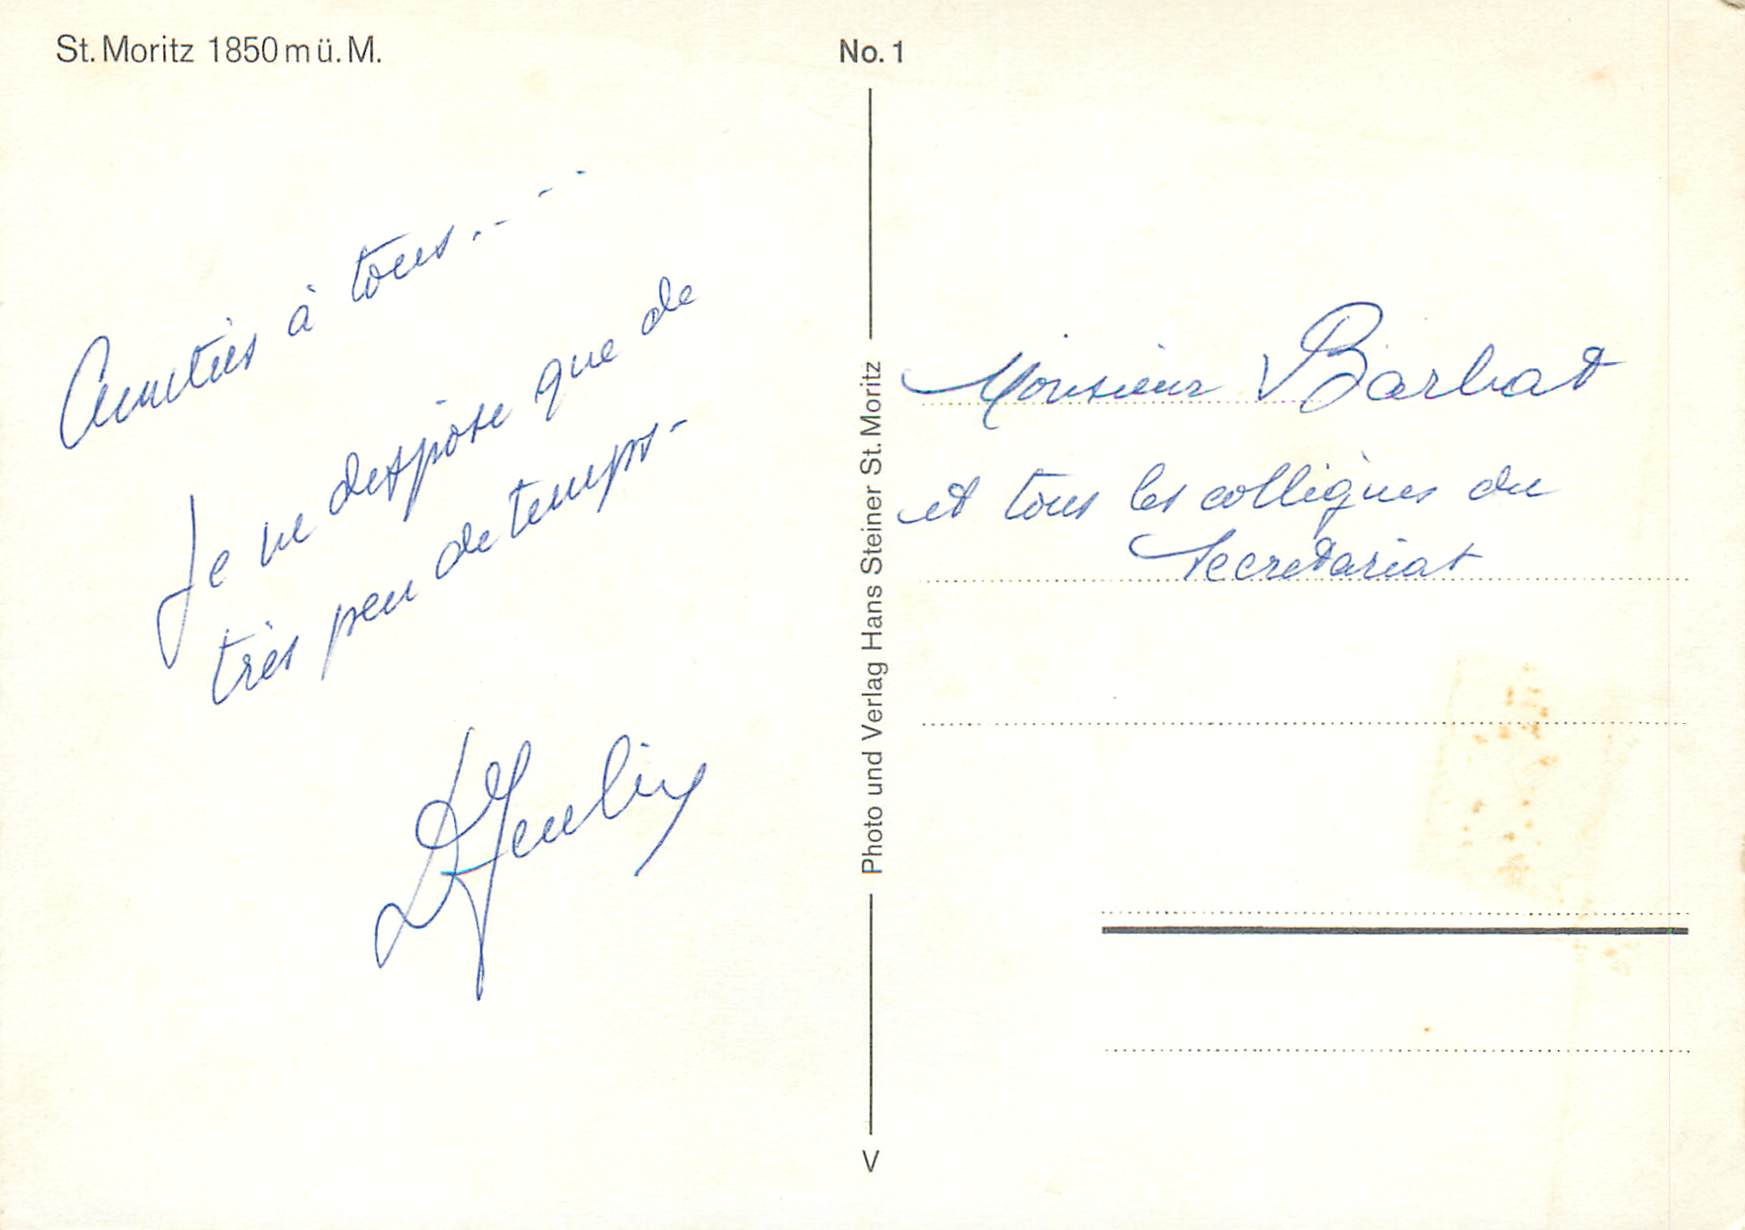 St. Moritz 1850 m ü. M.
No. 1
Amitiés à tous.....
Je ne dispose que de
très peu de temps-
Photo und Verlag Hans Steiner St. Moritz
V
Monsieur Barbat
et tous les collègues du
Secretariat